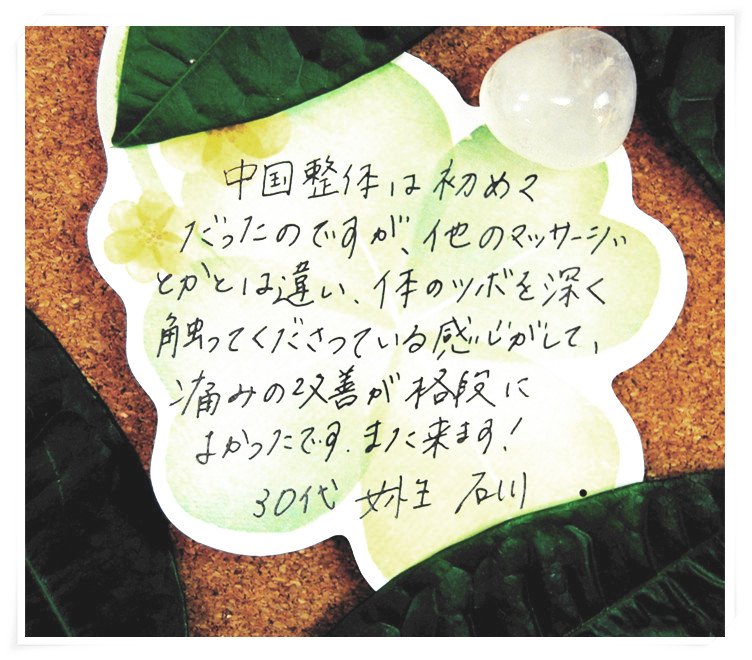 中国整体は初めて
だったのですが、他のマッサージ
とかとは違い、体のツボを深く
触ってくださっている感じがして、
痛みの改善が格段に
よかったです。また来ます!
30代 女性 石川